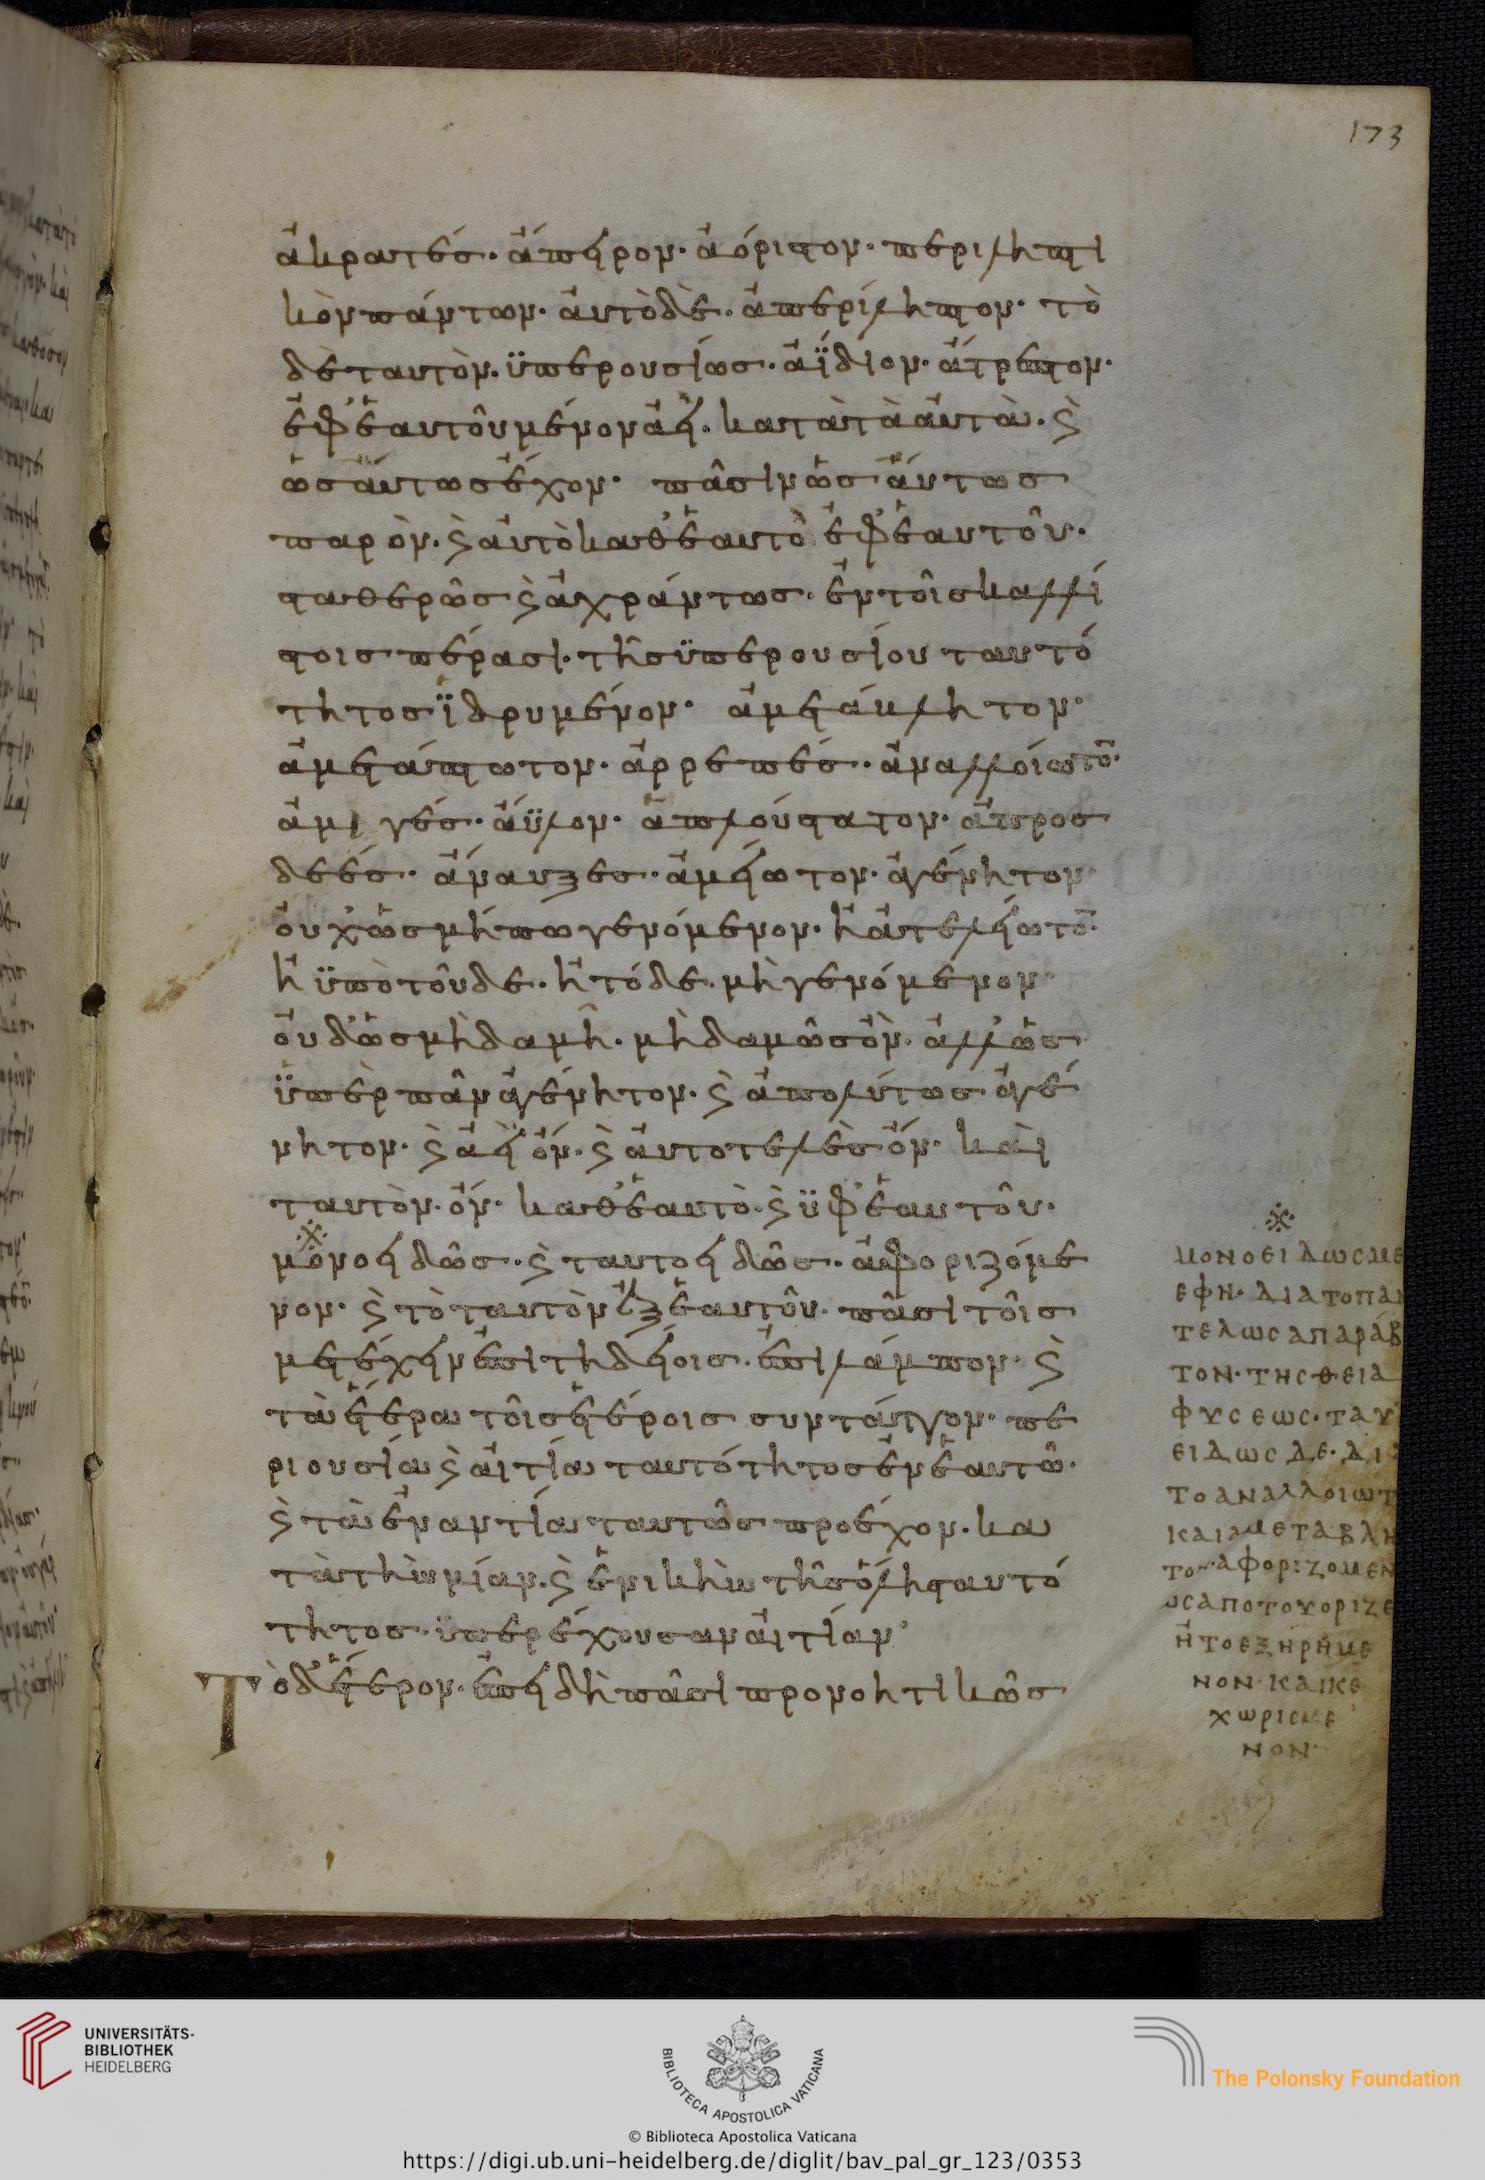 173
ἀκρατές· ἄπειρον· ἀόριστον· περιληπτι
κὸν πάντων· αὐτὸ δὲ· ἀπερίληπτον· τὸ
δὲ ταυτὸν· ϋπερουσίως· ἀΐδιον· ἄτρεπτον·
ἐφ' ἑαυτοῦ μένον ἀεὶ· κατὰ τὰ ἀυτὰ· ϗ
ὡσάυτως ἔχον· πᾶσιν ὡσάυτως
παρὸν· ϗ ἀυτὸ καθ' ἑαυτὸ ἐφ' ἑαυτοῦ·
σταθερῶς ϗ ἀχράντως· ἐν τοῖς καλλί
στοις πέρασι· τῆς ϋπερουσίου ταυτό
τητος ϊδρυμένον· ἀμετάκλητον·
ἀμετάπτωτον· ἀρρεπές· ἀναλλοίωτον·
ἀμιγές· ἄϋλον· ἁπλούστατον· ἀπροσ
δεές· ἀναυξες· ἀμείωτον· ἀγένητον·
ὀυχ' ὡς μήπω γενόμενον· ἢ ἀτελείωτον·
ἢ ϋπὸ τοῦδε· ἢ τόδε· μὴ γενόμενον·
ὀυδ' ὡς μηδαμῆ· μηδαμῶς ὀν· ἀλλ' ὡς
ϋπὲρ πᾶν ἀγένητον· ϗ ἀπολύτως ἀγέ
νητον· ϗ ἀεὶ ὄν· ϗ ἀυτοτελὲς ὄν· καὶ
ταυτὸν· ὄν· καθ' ἑαυτὸ· ϗ ϋφ' ἑαυτοῦ·
μονοειδῶς· ϗ ταυτοειδῶς· ἀφοριζόμε
νον· ϗ τὸ ταυτὸν ἐξ ἑαυτοῦ· πᾶσι τοῖς
μετέχειν ἐπιτηδείοις· ἐπιλάμπον· ϗ
τὰ ἕτερα τοῖς ἑτέροις συντάττον· πε
ριουσία ϗ ἀιτία ταυτότητος ἐν ἑαυτῶ·
ϗ τὰ ἐναντία ταυτῶς προέχον· κα
τὰ τὴν μίαν· ϗ ἑνικὴν τῆς ὅλης ταυτό
τητος ϋπερέχουσαν ἀιτίαν·
Τὸ δ' ἕτερον· ἐπειδὴ πᾶσι προνοητικῶς
ΜΟΝΟΕΙΔΩΣ ΜΕ
ΕΦΗ· ΔΙΑ ΤΟ ΠΑΝ
ΤΕΛΩΣ ΑΠΑΡΑΒ
ΤΟΝ· ΤΗΣ ΘΕΙΑ
ΦΥΣΕΩΣ· ΤΑΥ
ΕΙΔΩΣ ΔΕ· ΔΙ
ΤΟ ΑΝΑΛΛΟΙΩΤ
ΚΑΙ ΑΜΕΤΑΒΛΗ
ΤΟΝ· ΑΦΟΡΙΖΟΜΕΝ
ΩΣ ΑΠΟ ΤΟΥ ΟΡΙΖΕ
Ἢ ΤΟ ΕΞΗΡΗΜΕ
ΝΟΝ· ΚΑΙ ΚΕ
ΧΩΡΙΣΜΕ
ΝΟΝ·
UNIVERSITÄTS-
BIBLIOTHEK
HEIDELBERG
BIBLIOTECA APOSTOLICA VATICANA
The Polonsky Foundation
© Biblioteca Apostolica Vaticana
https://digi.ub.uni-heidelberg.de/diglit/bav_pal_gr_123/0353